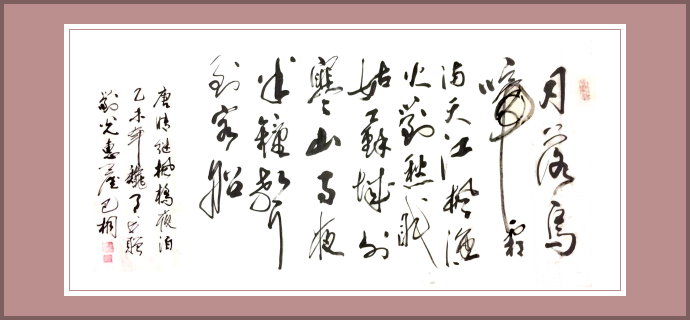 月落烏
啼霜
滿天江楓漁
火對愁眠
姑蘇城外
寒山寺夜
半鐘聲
到客船
唐張继楓橋夜泊
乙未年
劉光惠